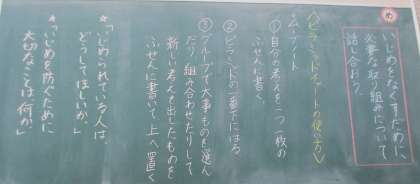 め
いじめをなくすために、
必要な取り組みについて
話し合おう。
〈ピラミッドチャートの使い方〉
①自分の考えを一つ一枚の
ふせんに書く。
②ピラミッドの一番下にはる。
③グループで大事なものを選ん
だり組み合わせたりして
新しい考えを出したものを
ふせんに書いて、上へ置く。
☆「いじめられている人は、
どうしてほしいか。」
☆「いじめを防ぐために
大切なことは何か。」